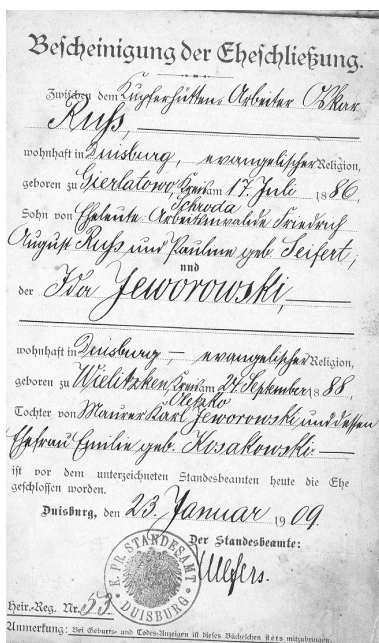 Bescheinigung der Eheschließung.
Zwischen dem Kupferhütten-Arbeiter Oskar
Ruß,
wohnhaft in Duisburg, evangelischer Religion,
geboren zu Gierlatowo, Kreis am 17. Juli 1886,
Schroda
Sohn von Eheleute: Friedrich
August Ruß und Pauline geb. Seifert,
und
der Ida Jeworowski,
wohnhaft in Duisburg, evangelischer Religion,
geboren zu Wielitzken, Kreis am 24. September 1888.
Oletzko
Tochter von Maurer Karl Jeworowski und dessen
Ehefrau Emilie geb. Kosakowski.
ist vor dem unterzeichneten Standesbeamten heute die Ehe
geschlossen worden.
Duisburg, den 23. Januar 1909.
Der Standesbeamte:
K. PR. STANDESAMT DUISBURG
Heir.-Reg. Nr. 53
Anmerkung: Bei Geburts- und Todes-Anzeigen ist dieses Büchelchen stets mitzubringen.